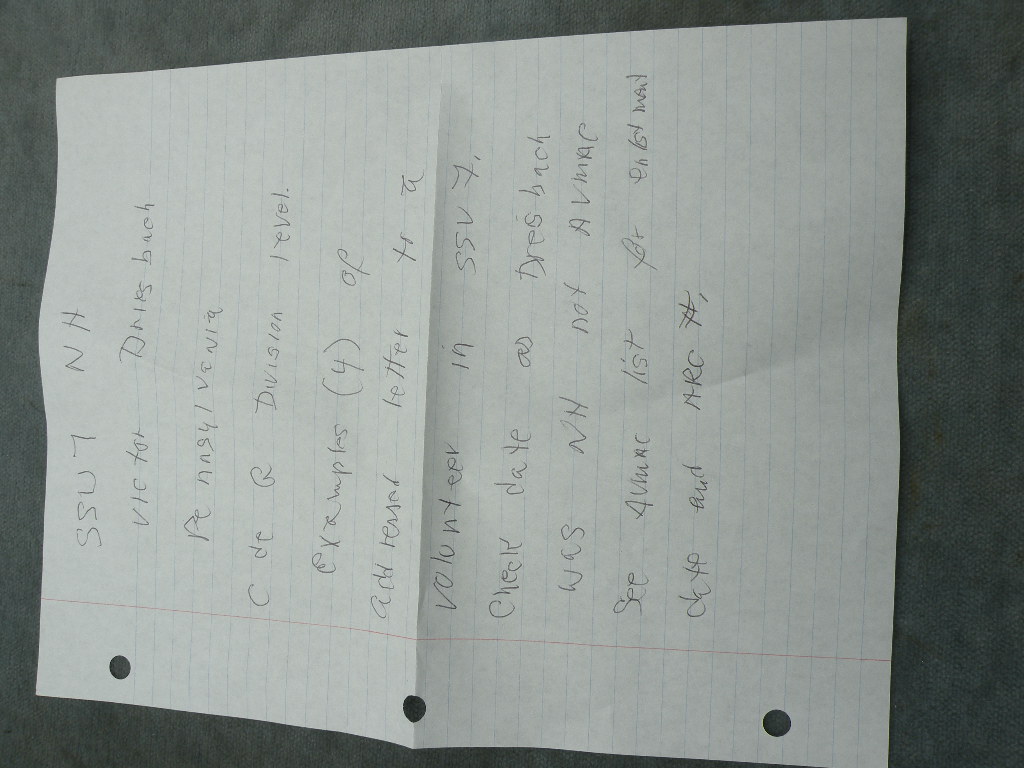 SSU 7 NH
Victor Driesbach
Pennsylvania
C de G Division level.
Examples (4) of
addressed letter to a
volunteer in SSU 7.
Check date as Dreisbach
was NH not AVMAC
See AVMAC list for enlistment
date and ARC #.